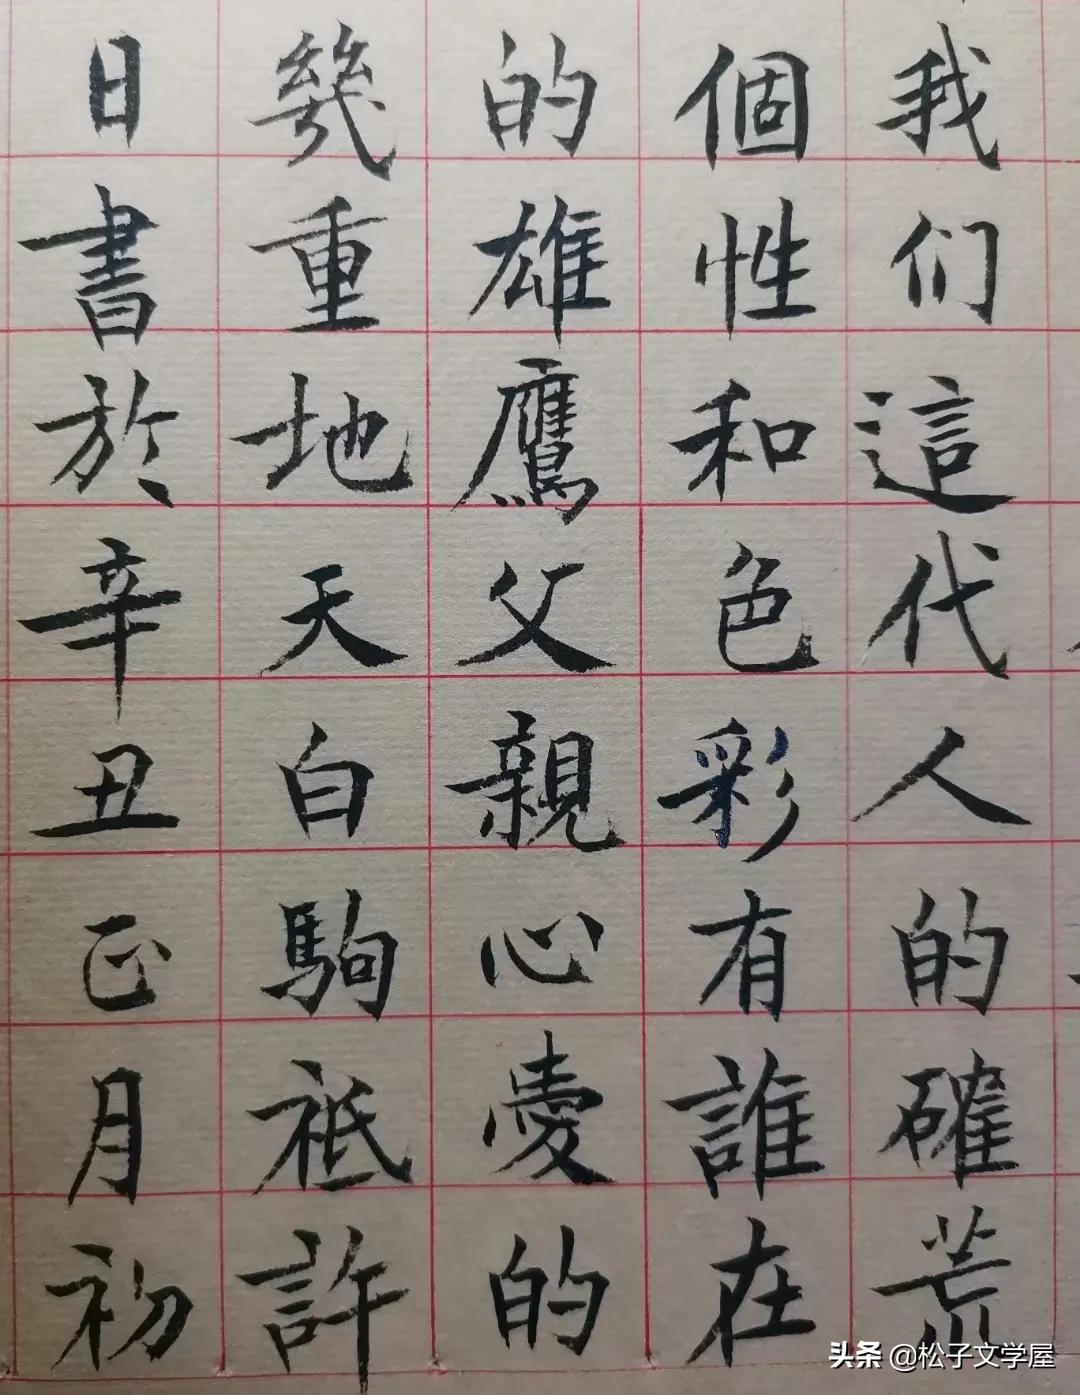 我们這代人的確荒
個性和色彩有誰在
的雄鷹父親心愛的
幾重地天白駒祗許
日書於辛丑正月初
头条 @松子文学屋